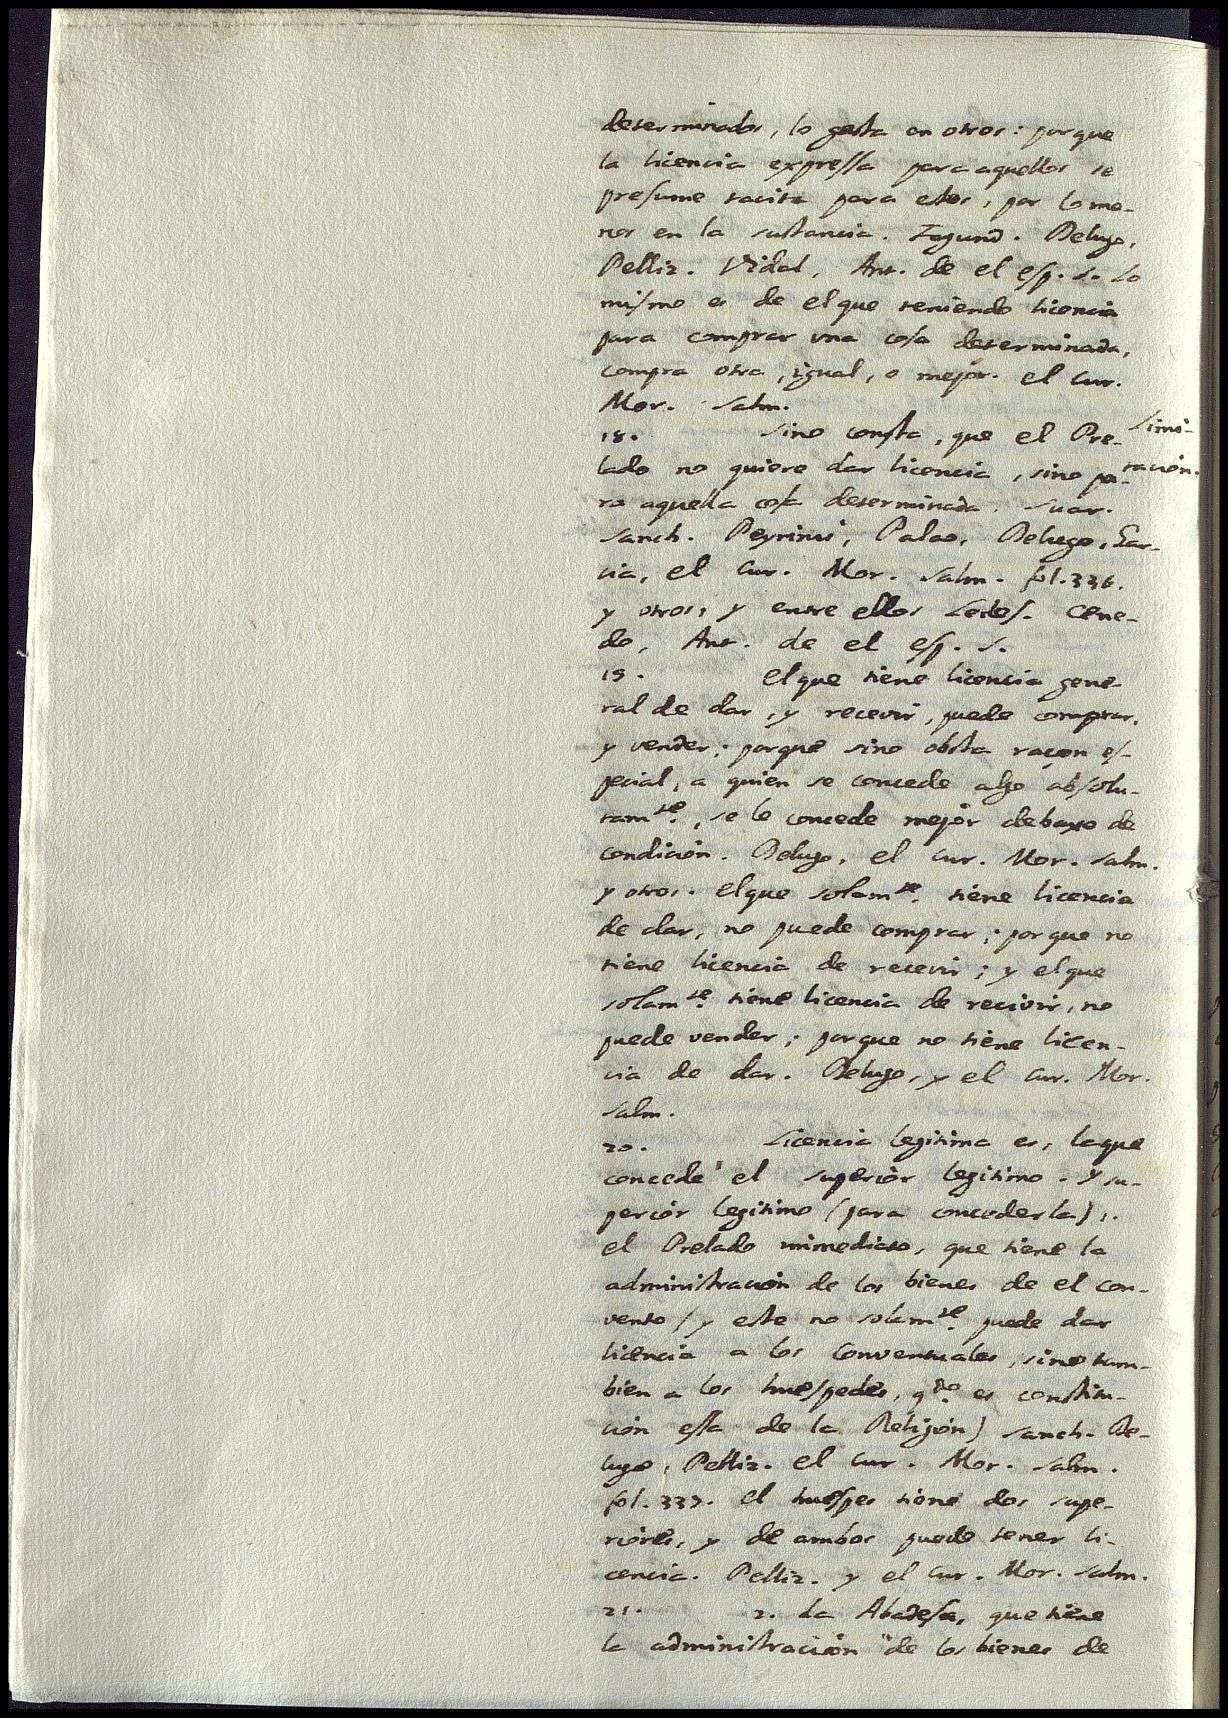 determinados, lo gasta en otros: porque
la licencia expressa para aquellos se
presume tacita para estos, por lo me-
nos en la sustancia. Fagund. Delugo,
Pelliz. Vidal, Ant. de el esp. s. Lo
mismo es de el que teniendo licencia
para comprar una cosa determinada,
compra otra, igual, o mejor. el Cur.
Mor. Salm.
18. Sino consta, que el Pre-
lado no quiere dar licencia, sino pa-
ra aquella cosa determinada. Suar.
Sanch. Peyrinis, Palao, Delugo, Gar-
cia, el Cur. Mor. Salm. fol. 336.
y otros, y entre ellos Ledes. Cene-
do, Ant. de el esp. s.
Limi-
tación.
19. El que tiene licencia gene-
ral de dar, y recevir, puede comprar,
y vender; porque sino obsta raçon es-
pecial, a quien se concede algo absolu-
tamte., se le concede mejor debaxo de
condición. Delugo, el Cur. Mor. Salm.
y otros. El que solamte. tiene licencia
de dar, no puede comprar; porque no
tiene licencia de recevir; y el que
solamte. tiene licencia de recivir, no
puede vender; porque no tiene licen-
cia de dar. Delugo, y el Cur. Mor.
Salm.
20. Licencia legitima es, la que
concede el superiór legitimo. Y su-
periór legitimo (para concederla),
el Prelado inmediato, que tiene la
administración de los bienes de el con-
vento (y este no solamte. puede dar
licencia a los Conventuales, sino tam-
bien a los huespedes, qdo. es constitu-
ción esta de la Religión) Sanch. De-
lugo, Pelliz. el Cur. Mor. Salm.
fol. 337. el huespes tiene dos supe-
riores, y de ambos puede tener li-
cencia. Pelliz. y el Cur. Mor. Salm.
21. 2. La Abadesa, que tiene
la administración de los bienes de